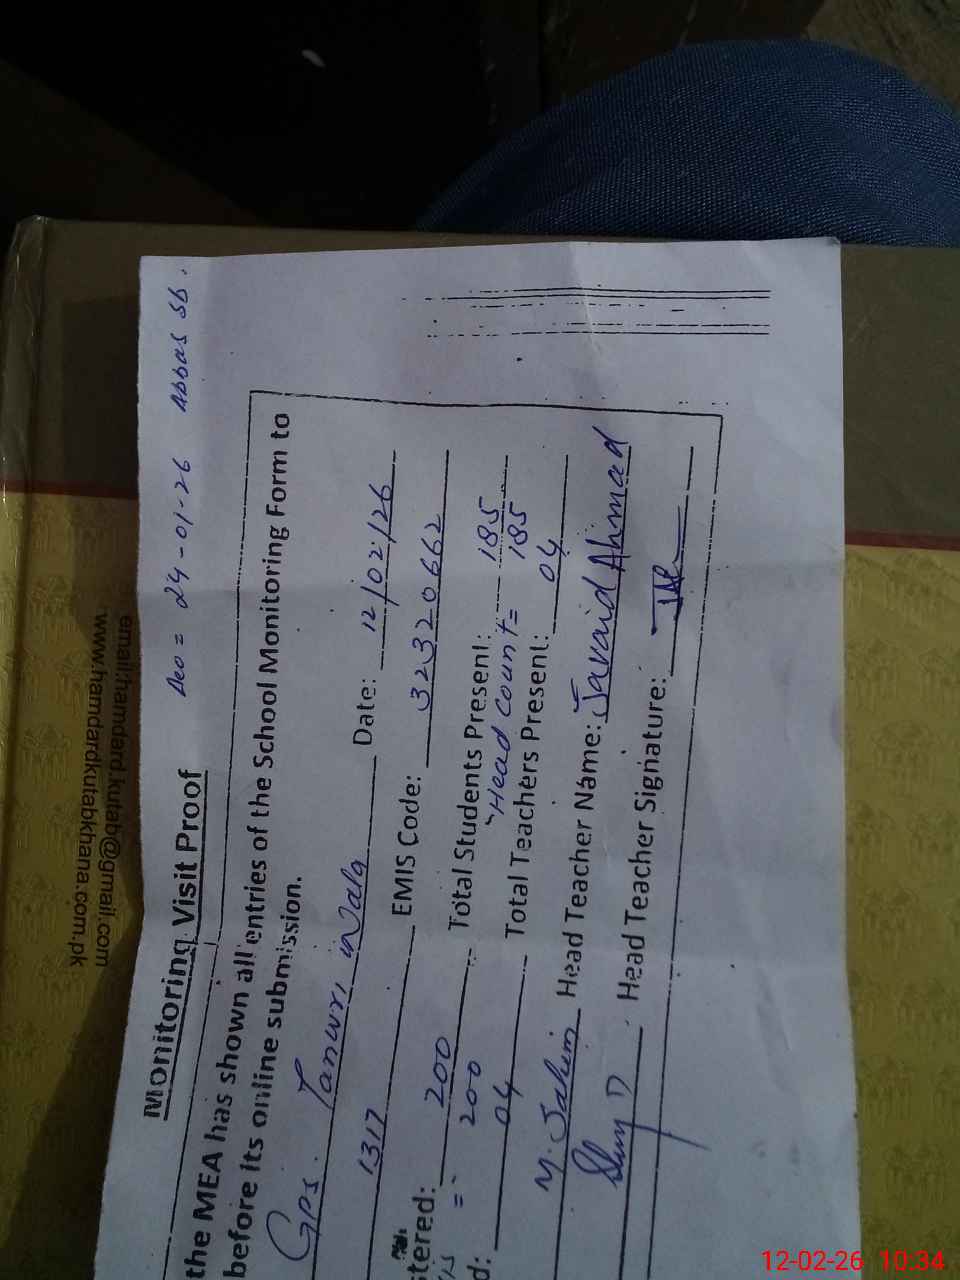 Aeo = 24-01-26 Abbas Sb.
Monitoring Visit Proof
the MEA has shown all entries of the School Monitoring Form to
before its online submission.
GPS. Date: 12/02/26
1317 EMIS Code: 32320662
stered: 200 Total Students Present: 185
= 200 Head count = 185
d: 04 Total Teachers Present: 04
Head Teacher Name: Javaid Ahmad
Head Teacher Signature:
email:hamdard.kutab@gmail.com
www.hamdardkutabkhana.com.pk
12-02-26 10:34